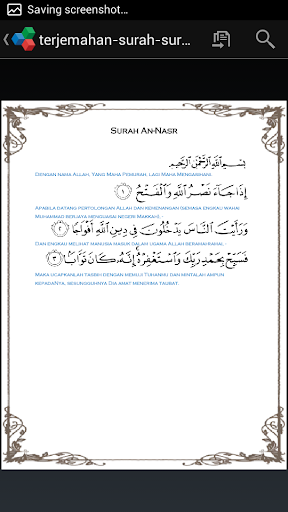 Saving screenshot...
terjemahan-surah-sur...
Surah An-Nasr
بِسْمِ اللَّهِ الرَّحْمَٰنِ الرَّحِيمِ
Dengan nama Allah, Yang Maha Pemurah, lagi Maha Mengasihani.
إِذَا جَاءَ نَصْرُ اللَّهِ وَالْفَتْحُ ١
Apabila datang pertolongan Allah dan kemenangan (semasa engkau wahai
Muhammad berjaya menguasai negeri Makkah). -
وَرَأَيْتَ النَّاسَ يَدْخُلُونَ فِي دِينِ اللَّهِ أَفْوَاجًا ٢
Dan engkau melihat manusia masuk dalam ugama Allah beramai-ramai. -
فَسَبِّحْ بِحَمْدِ رَبِّكَ وَاسْتَغْفِرْهُ إِنَّهُ كَانَ تَوَّابًا ٣
Maka ucapkanlah tasbih dengan memuji Tuhanmu dan mintalah ampun
kepadaNya, sesungguhnya Dia amat menerima taubat.